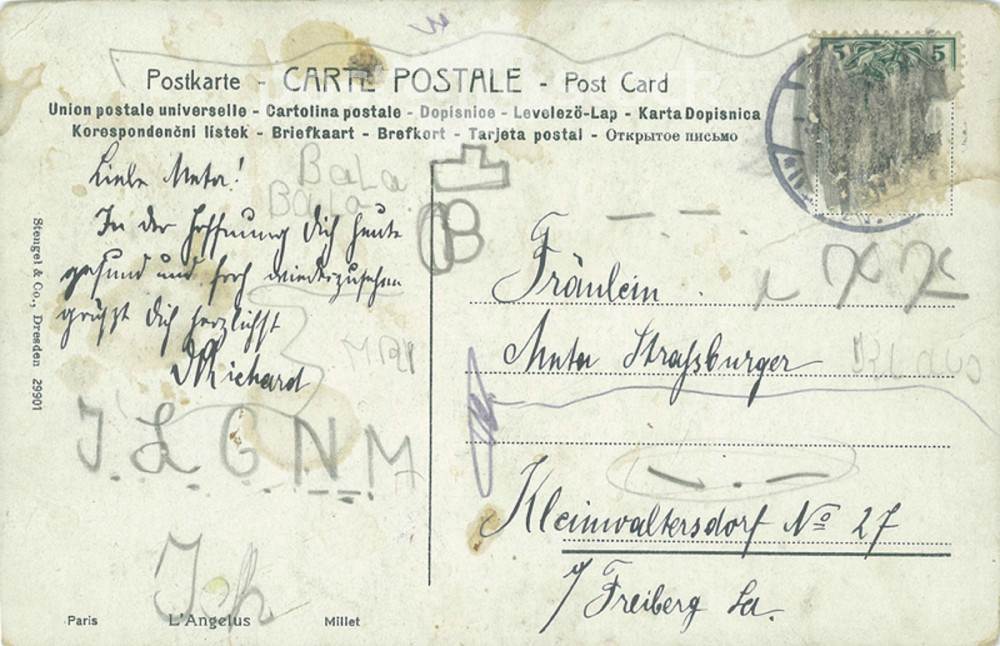 5 5
Postkarte - CARTE POSTALE - Post Card
Union postale universelle - Cartolina postale - Dopisnice - Levelező-Lap - Karta Dopisnica
Korespondenční listek - Briefkaart - Brefkort - Tarjeta postal - Открытое письмо
Liebe Meta!
In der Hoffnung Dich heute
gesund und froh wiederzusehen
grüßt Dich herzlichst
Richard
BaLa
BaLa
I L G N M
Ich
Stengel & Co., Dresden 29901
Fräulein
Meta Straßburger
Klaus
Kleinwaltersdorf No 27
b/ Freiberg Sa.
Paris L'Angelus Millet